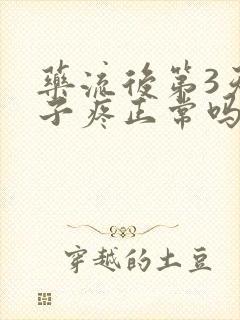 藥流後第3天
子疼正常吗
穿越的土豆